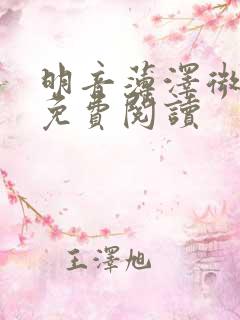 明音薄澤微
免費閱讀
王澤旭